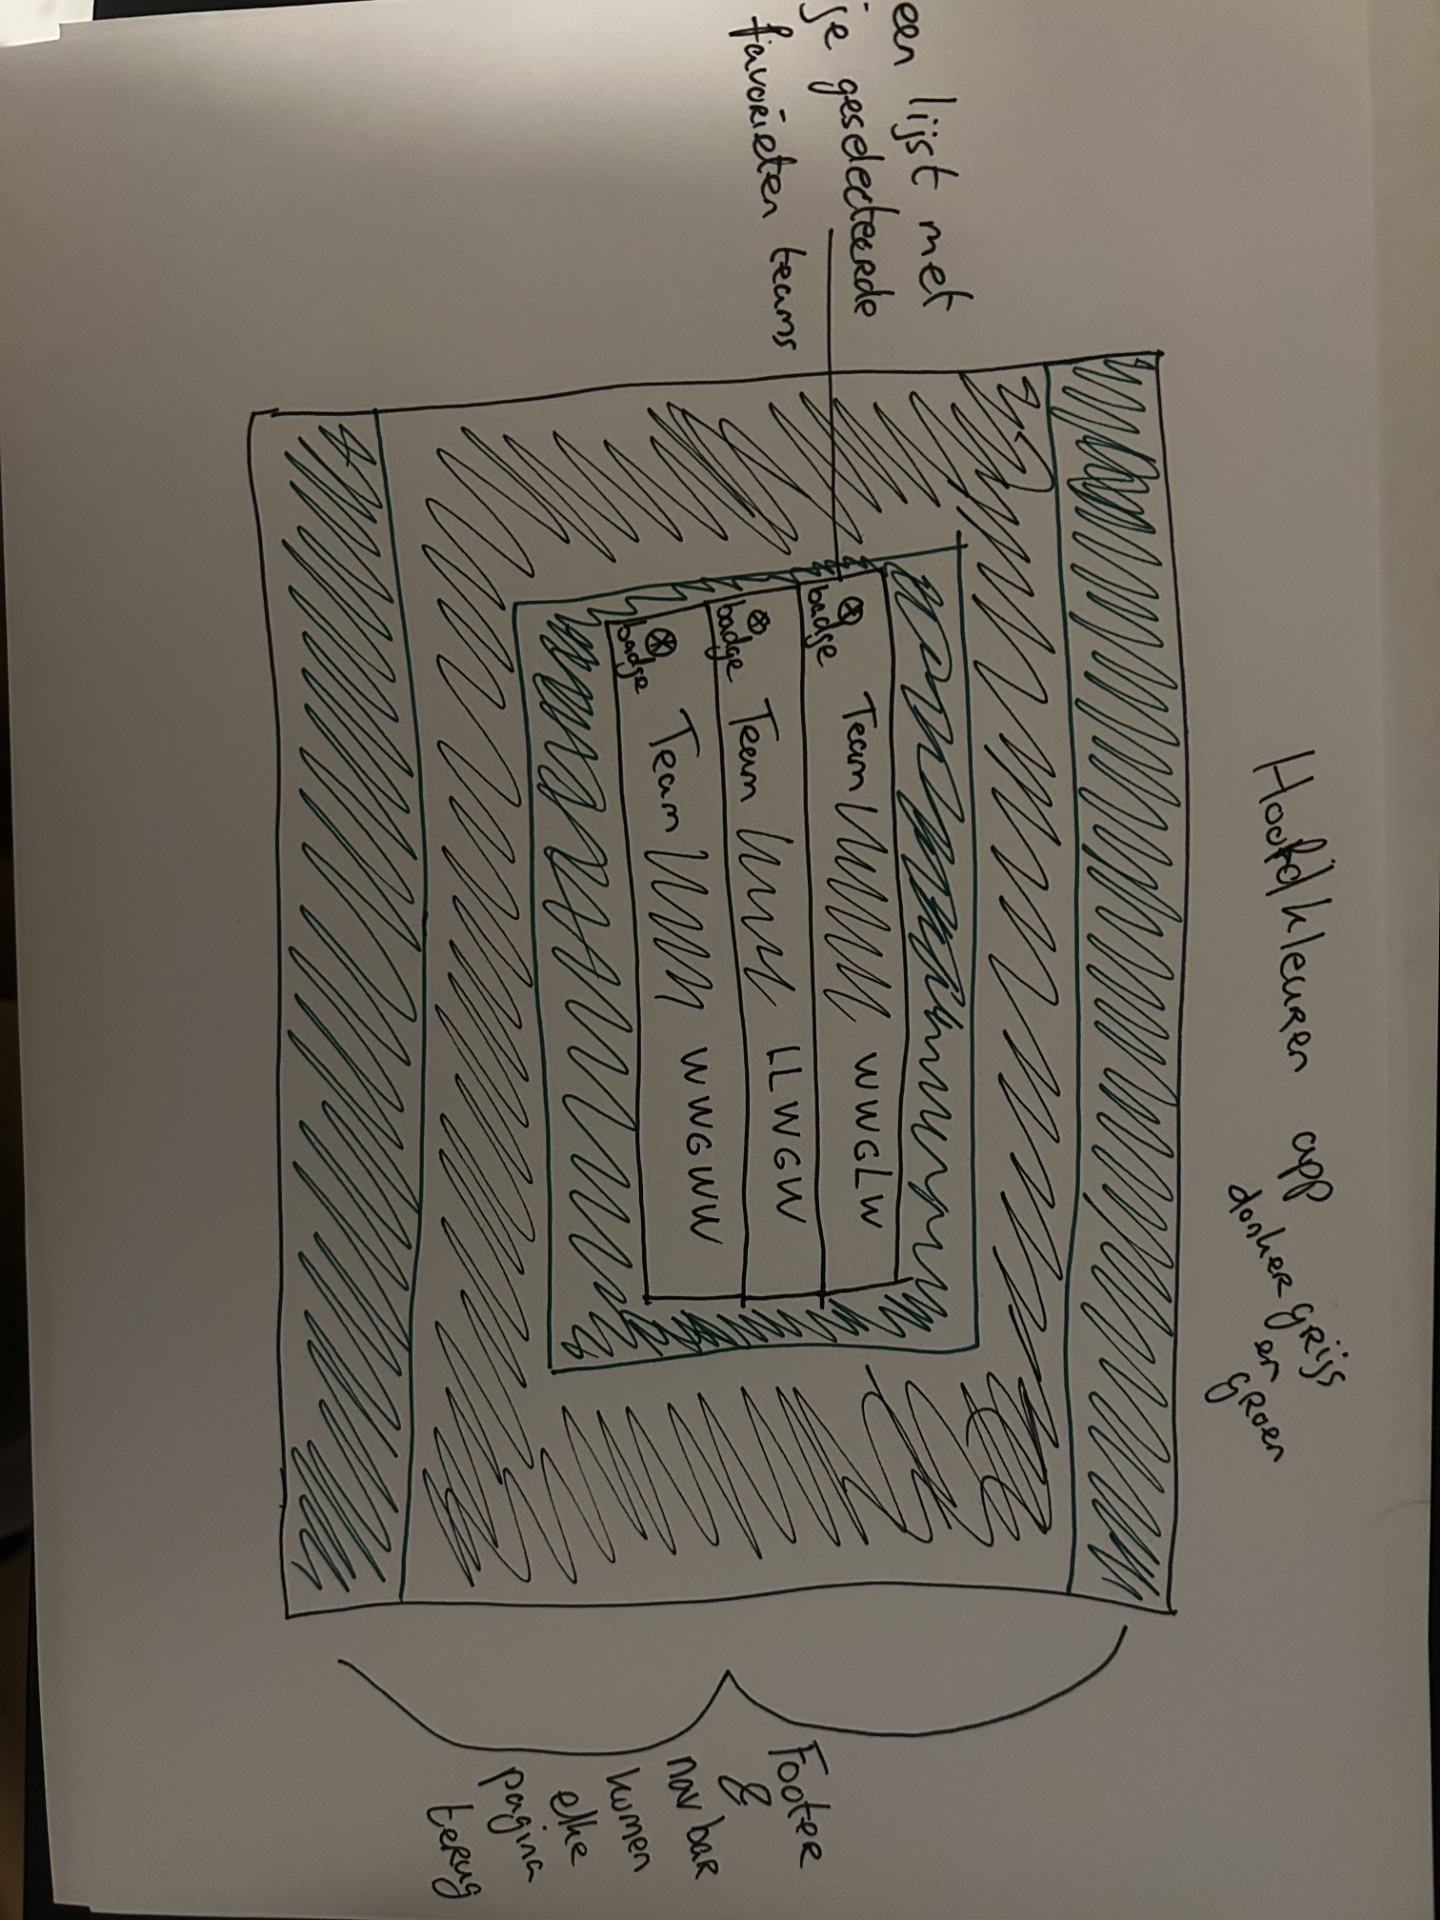 Hoofdkleuren app
donker grijs
en
groen
een lijst met
je geselecteerde
favorieten teams
badge Team WWGLW
badge Team LLWGW
badge Team WWGWW
Footer
&
navbar
komen
elke
pagina
terug